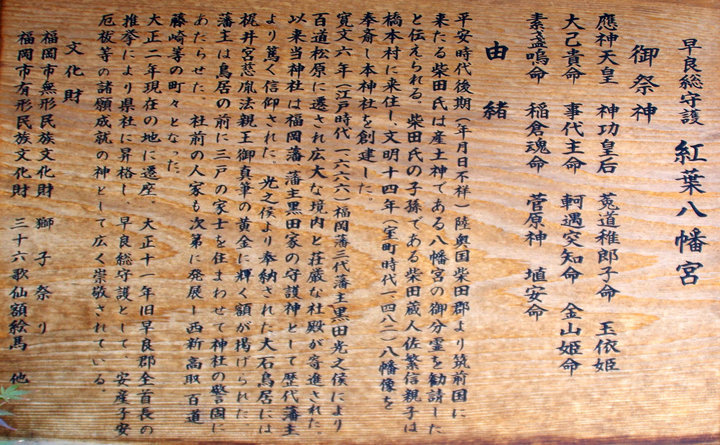 早良総守護 紅葉八幡宮
御祭神
應神天皇 神功皇后 菟道稚郎子命 玉依姫
大己貴命 事代主命 軻遇突知命 金山姫命
素盞嗚命 稲倉魂命 菅原神 埴安命
由緒
平安時代後期（年月日不祥）陸奥国柴田郡より筑前国に
来たる柴田氏は産土神である八幡宮の御分霊を勧請した
と伝えられる。柴田氏の子孫である柴田蔵人佐繁信親子は
橋本村に来住し、文明十四年（室町時代一四八二）八幡像を
奉斎し本神社を創建した。
寛文六年（江戸時代一六六六）福岡藩三代藩主黒田光之侯により
百道松原に遷され広大な境内と荘厳な社殿が寄進された。
以来当神社は福岡藩、藩主黒田家の守護神として歴代藩主
より篤く信仰された。光之侯より奉納された大石鳥居には
梶井宮慈胤法親王御真筆の黄金に輝く額が掲げられた。
藩主は鳥居の前に三戸の家士を住まわせて神社の警固に
あたらせた。社前の人家も次第に発展し西新高取、百道
藤崎等の町々となった。
大正二年現在の地に遷座、大正十一年旧早良郡全首長の
推挙により県社に昇格し、早良総守護として、安産子安
厄祓等の諸願成就の神として広く崇敬されている。
文化財
福岡市無形民族文化財 獅子祭り
福岡市有形民族文化財 三十六歌仙額絵馬 他